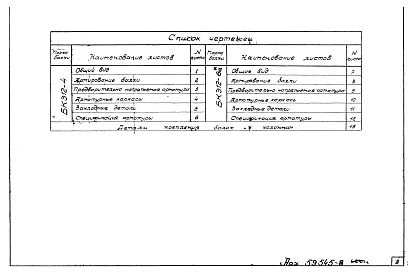 Список чертежей
Марка балки Наименование листов N листа Марка балки Наименование листов N листа
БКЭ12-4 БКЭ12-6
Общий вид 1 Общий вид 7
Армирование балки 2 Армирование балки 8
Предварительно напряженная арматура 3 Предварительно напряженная арматура 9
Арматурные каркасы 4 Арматурные каркасы 10
Закладные детали 5 Закладные детали 11
Спецификация арматуры 6 Спецификация арматуры 12
Детали крепления балок к колоннам 13
59545-8 2